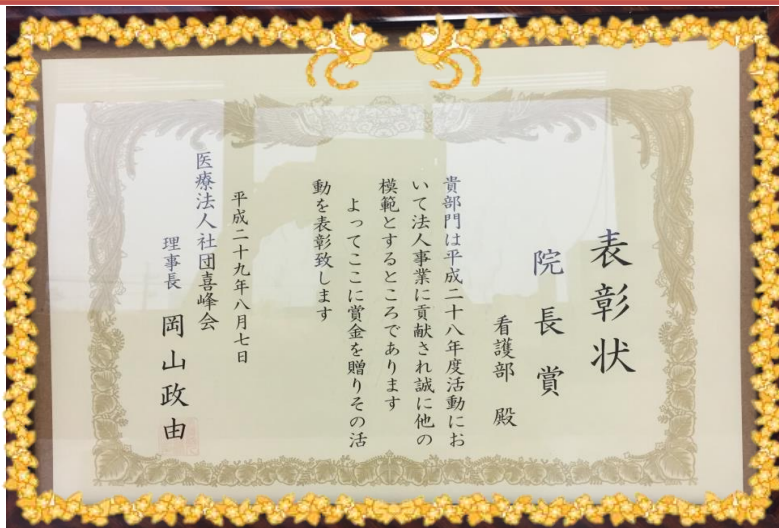 表彰状
院長賞
看護部 殿
貴部門は平成二十八年度活動にお
いて法人事業に貢献され誠に他の
模範とするところであります
よってここに賞金を贈りその活
動を表彰致します
平成二十九年八月七日
医療法人社団喜峰会
理事長 岡山政由